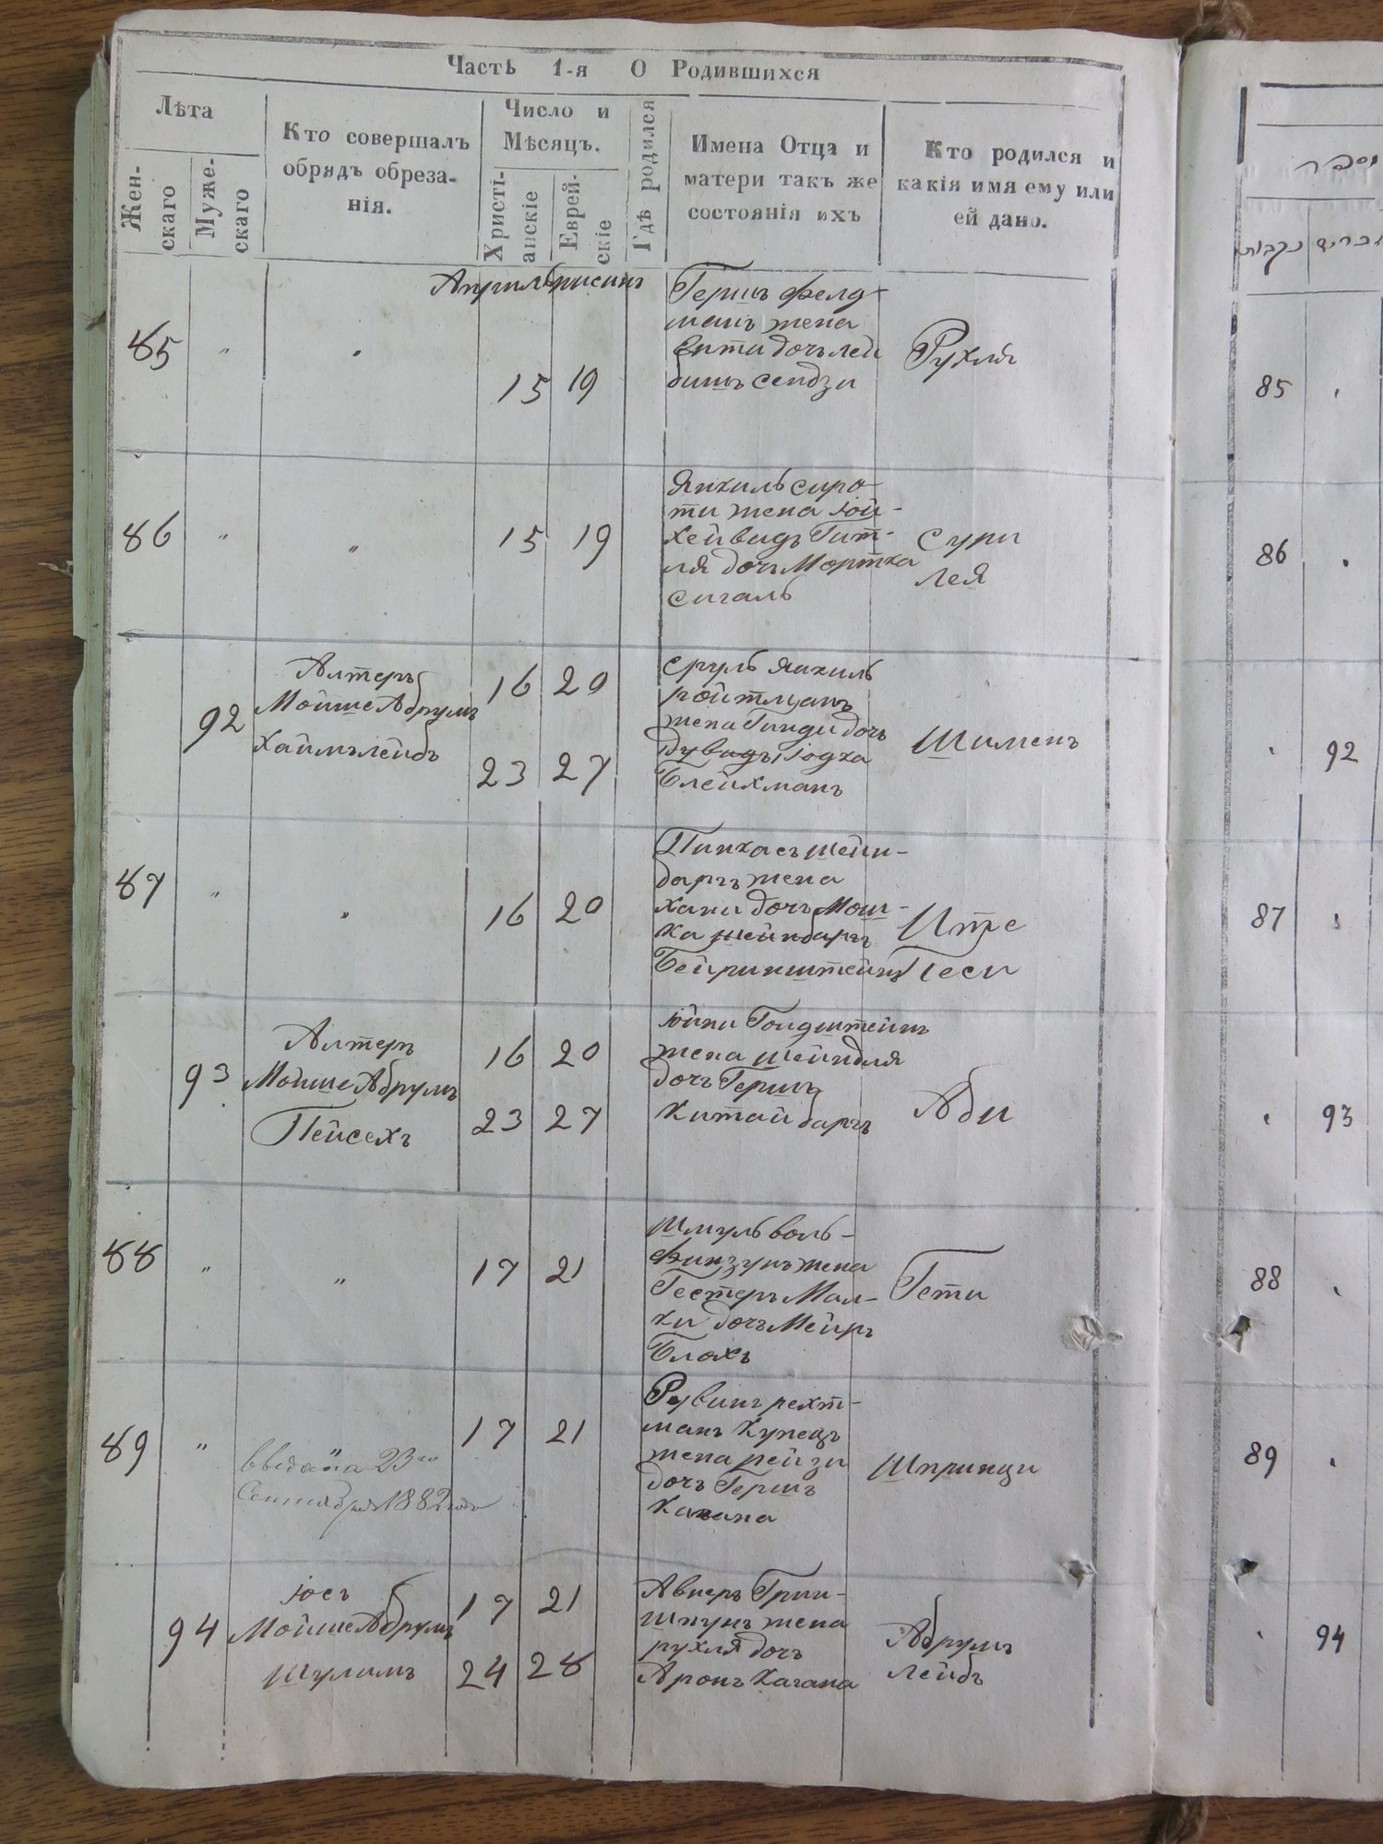 Часть 1-я О Родившихся
Лѣта
Жен-
скаго
Муже-
скаго
Кто совершалъ
обрядъ обреза-
нія.
Число и
Мѣсяцъ.
Христі-
анскіе
Еврей-
скіе
Гдѣ родился
Имена Отца и
матери такъ же
состоянія ихъ
Кто родился и
какія имя ему или
ей дано.
Апрель Нисинъ
85 " "
15 19
Гершъ Фелд-
манъ жена
Ента дочь лей
бишъ
Рухля
86 " "
15 19
Янкиль Сиро-
ти жена Іой-
хейвидъ Гит-
ля дочь Мортка
Сигаль
Сури
Лея
92
Алтеръ
Мойше Абрумъ
Хаимълейбъ
16 20
23 27
Сруль Янкиль
Ройтманъ
жена Гинди дочь
Дувидъ Іодка
Блейхманъ
Шименъ
87 " "
16 20
Пинхасъ Шейн-
баргъ жена
Хани дочь Мош-
ка Шейнбаргъ
Ите
Геси
93
Алтеръ
Мойше Абрумъ
Пейсехъ
16 20
23 27
Іойни Гольдштейнъ
жена Шейндля
дочь Гершъ
Китайбаргъ
Аби
88 " "
17 21
Шмуль Воль-
финзунъ жена
Гестеръ Мал-
ки дочь Мейръ
Блохъ
Гети
89 " "
17 21
23го
Сентября 1882 года
Рувинъ Рехт-
манъ Купецъ
жена Рейзи
дочь Гершъ
Кагана
Шпринци
94
Іосъ
Мойше Абрумъ
Шулимъ
17 21
24 28
Авнеръ Грин-
шпунъ жена
Рухля дочь
Аронъ Кагана
Абрумъ
Лейбъ
מספר
נקבות
זכרים
85
86
92
87
93
88
89
94